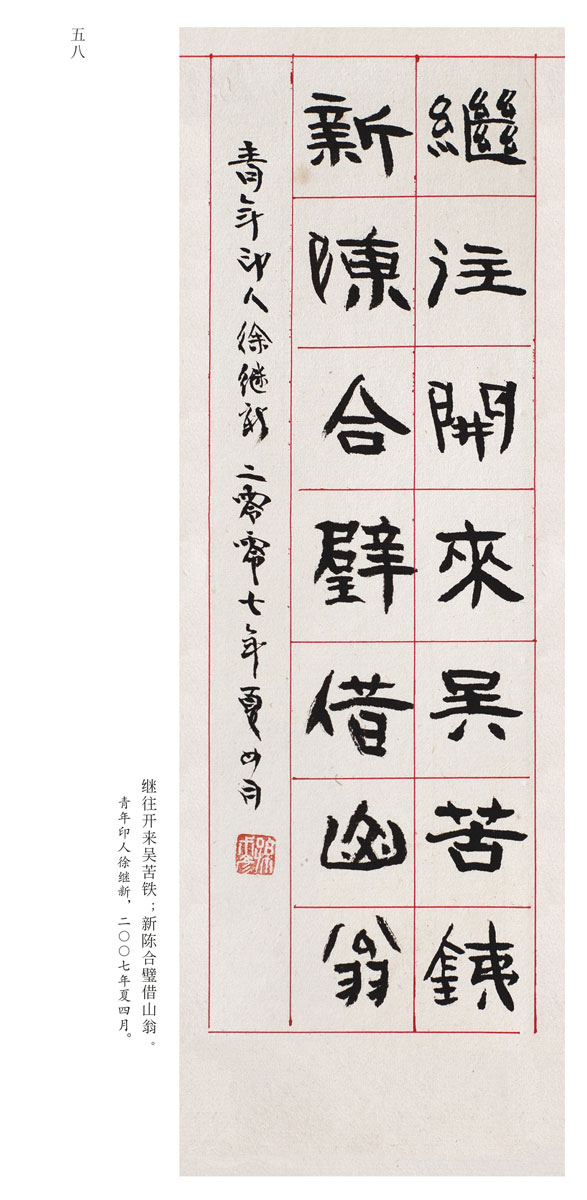 繼往開來吳苦銕
新陳合璧借山翁
青年印人徐继新 二零零七年夏四月
继往开来吴苦铁；新陈合璧借山翁。
青年印人徐继新，二〇〇七年夏四月。
五八